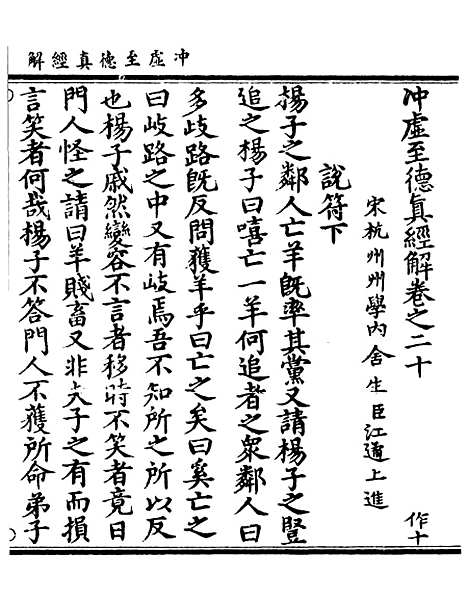 冲虛至德真經解
冲虛至德眞經解卷之二十
作十
宋杭州州學內舍生臣江遹上進
說符下
揚子之鄰人亡羊旣率其黨又請楊子之豎
追之楊子曰嘻亡一羊何追者之衆鄰人曰
多歧路旣反問獲羊乎曰亡之矣曰奚亡之
曰歧路之中又有歧焉吾不知所之所以反
也楊子戚然變容不言者移時不笑者竟日
門人怪之請曰羊賤畜又非夫子之有而損
言笑者何哉楊子不答門人不獲所命弟子